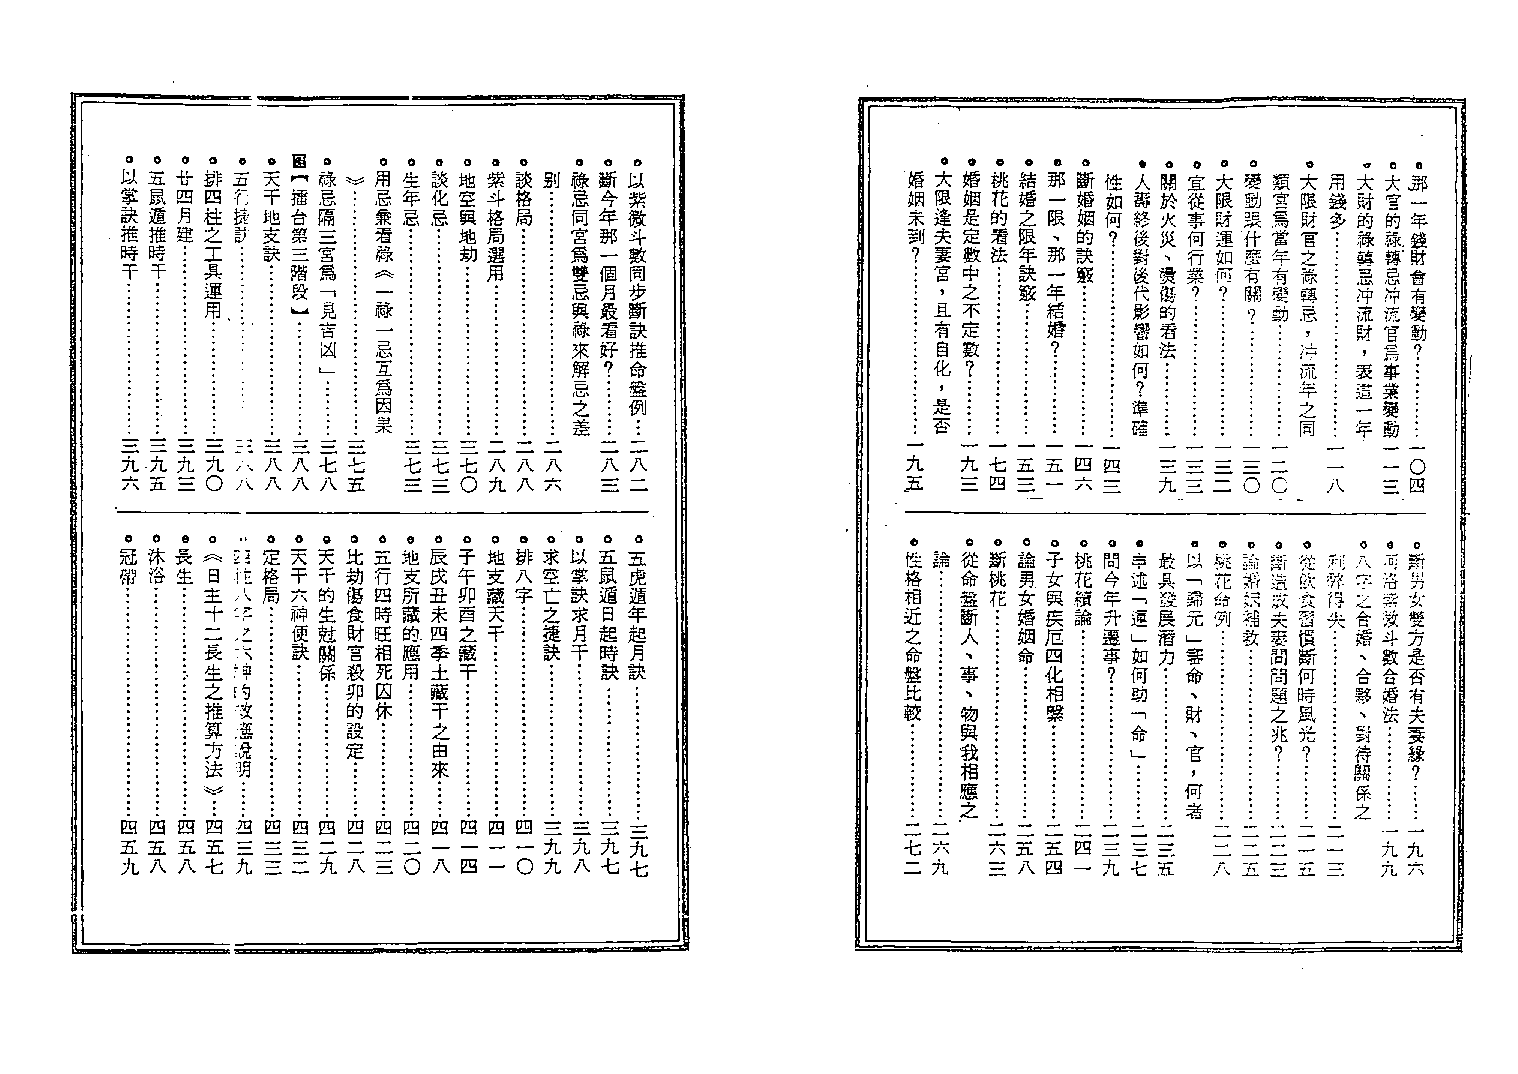 ●那一年錢財會有變動？……一〇四
●大官的祿轉忌冲流官爲事業變動一一三
●大財的祿轉忌冲流財，表這一年
用錢多……一一八
●大限財官之祿轉忌，冲流年之同
類宮爲當年有變動……一二〇
●變動跟什麼有關？……一三〇
●大限財運如何？……一三二
●宜從事何行業？……一三三
●關於火災、燙傷的看法……一三九
●人壽終後對後代影響如何？準確
性如何？……一四三
●斷婚姻的訣竅……一四六
●那一限、那一年結婚？……一五一
●結婚之限年訣竅……一五三
●桃花的看法……一七四
●婚姻是定數中之不定數？……一九三
●大限逢夫妻宮，且有自化，是否
婚姻未到？……一九五
●斷男女雙方是否有夫妻緣？……一九六
●河洛紫微斗數合婚法……一九九
●八字之合婚、合夥、對待關係之
利弊得失……二一三
●從飲食習慣斷何時風光？……二一五
●斷遠放夫妻問問題之兆？……二二三
●論婚姻補救……二二五
●桃花命例……二二八
●以「歸元」審命、財、官，何者
最具發展潛力……二三五
●申述「運」如何助「命」……二三七
●問今年升遷事？……二三九
●桃花續論……二四一
●子女與疾厄四化相繫……二五四
●論男女婚姻命……二五八
●斷桃花……二六三
●從命盤斷人、事、物與我相應之
論……二六九
●性格相近之命盤比較……二七二
●以紫微斗數同步斷訣推命盤例…二八二
●斷今年那一個月最看好？……二八三
●祿忌同宮爲雙忌與祿來解忌之差
別……二八六
●談格局……二八八
●紫斗格局選用……二八九
●地空與地劫……三七〇
●談化忌……三七三
●生年忌……三七三
●用忌兼看祿《一祿一忌互爲因果
》……三七五
●祿忌隔三宮爲「見吉凶」……三七八
圖【擂台第三階段】……三八八
●天干地支訣……三八八
●五行捷訣……三八八
●排四柱之工具運用……三九〇
●廿四月建……三九三
●五鼠遁推時干……三九五
●以掌訣推時干……三九六
●五虎遁年起月訣……三九七
●五鼠遁日起時訣……三九七
●以掌訣求月干……三九八
●求空亡之捷訣……三九九
●排八字……四一〇
●地支藏天干……四一一
●子午卯酉之藏干……四一四
●辰戌丑未四季土藏干之由來……四一八
●地支所藏的應用……四二〇
●五行四時旺相死囚休……四二三
●比劫傷食財官殺卯的設定……四二八
●天干的生尅關係……四二九
●天干六神便訣……四三二
●定格局……四三三
八字之六神的效應說明……四三九
●《日主十二長生之推算方法》…四五七
●長生……四五八
●沐浴……四五八
●冠帶……四五九